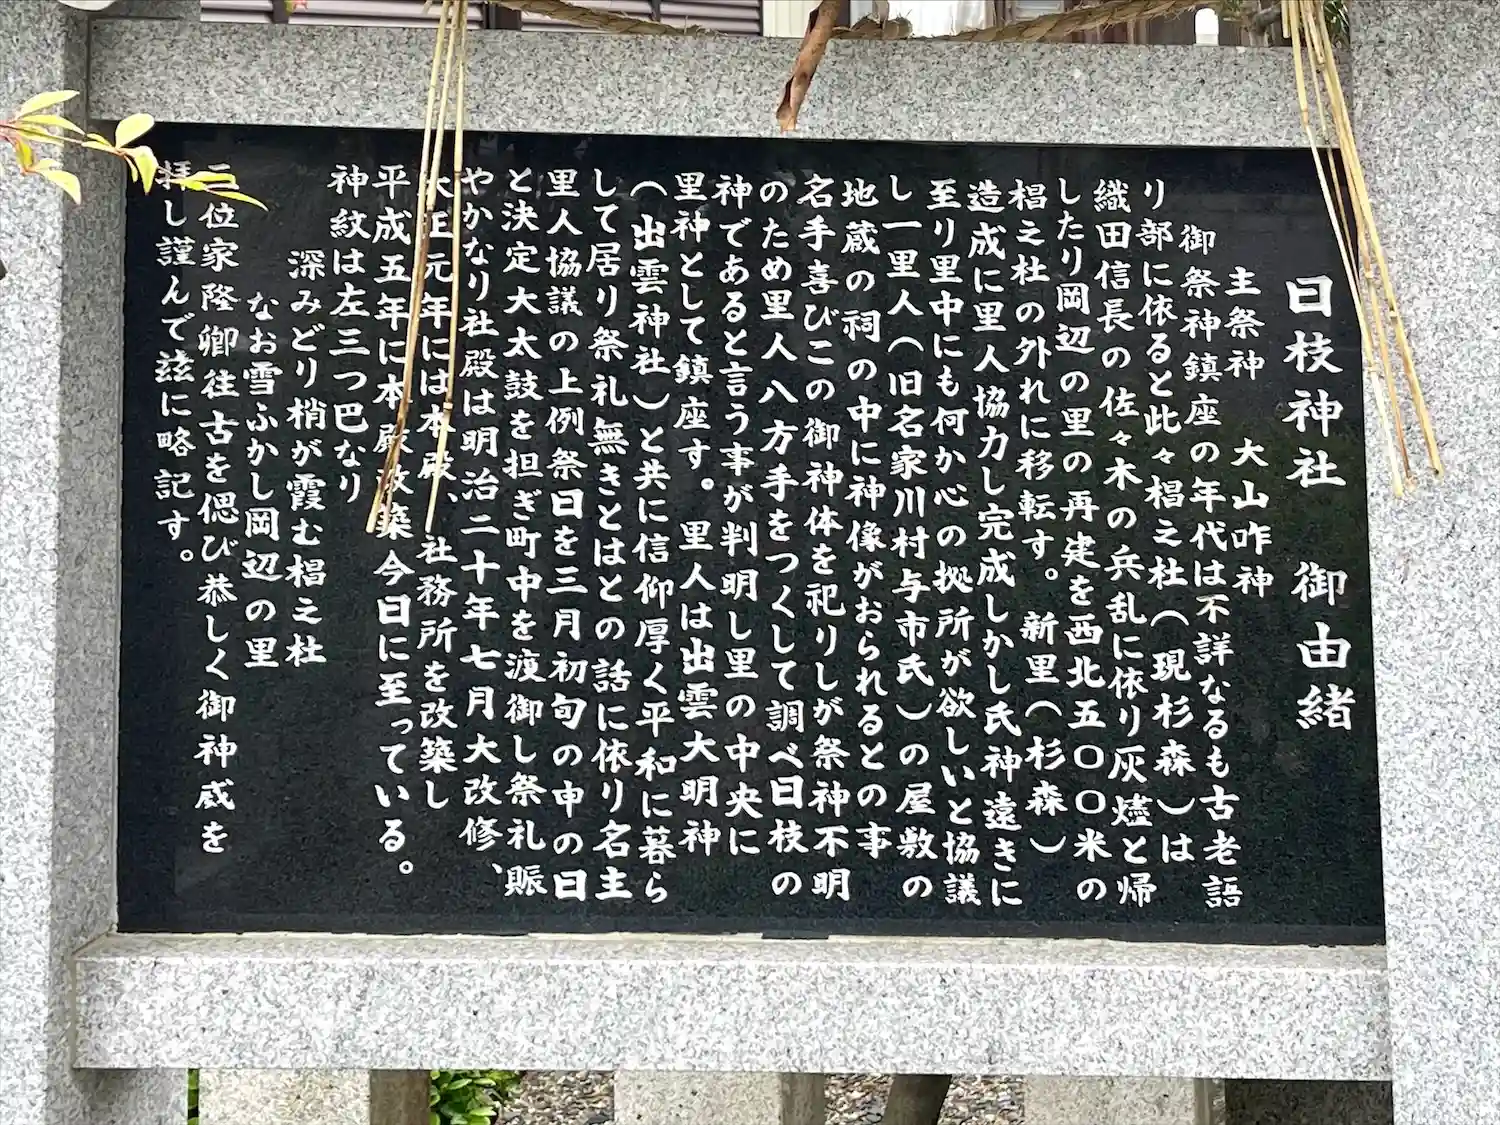 日枝神社 御由緒
主祭神 大山咋神
御祭神鎮座の年代は不詳なるも古老語
り部に依ると此々椙之杜（現杉森）は
織田信長の佐々木の兵乱に依り灰燼と帰
したり岡辺の里の再建を西北五〇〇米の
椙之杜の外れに移転す。新里（杉森）
造成に里人協力し完成しかし氏神遠きに
至り里中にも何か心の拠所が欲しいと協議
し一里人（旧名家川村与市氏）の屋敷の
地蔵の祠の中に神像がおられるとの事
名手喜びこの御神体を祀りしが祭神不明
のため里人八方手をつくして調べ日枝の
神であると言う事が判明し里の中央に
里神として鎮座す。里人は出雲大明神
（出雲神社）と共に信仰厚く平和に暮ら
して居り祭礼無きとはとの話に依り名主
里人協議の上例祭日を三月初旬の申の日
と決定大太鼓を担ぎ町中を渡御し祭礼賑
やかなり社殿は明治二十年七月大改修、
大正元年には本殿、社務所を改築し
平成五年に本殿改築今日に至っている。
神紋は左三つ巴なり
深みどり梢が霞む椙之杜
なお雪ふかし岡辺の里
二位家隆卿往古を偲び恭しく御神威を
拝し謹んで茲に略記す。